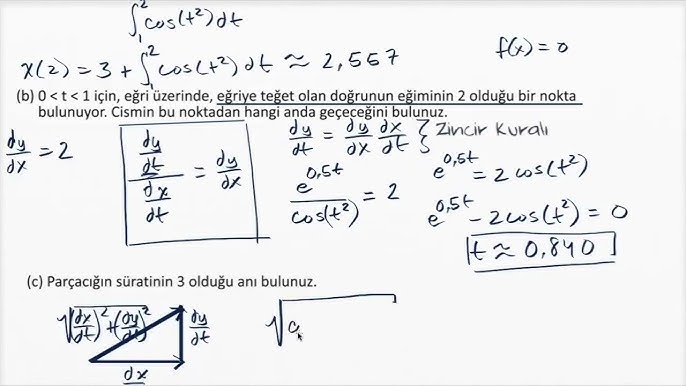 ∫₁² cos(t²)dt
x(2) = 3 + ∫₁² cos(t²)dt ≈ 2,557
f(x) = 0
(b) 0 < t < 1 için, eğri üzerinde, eğriye teğet olan doğrunun eğiminin 2 olduğu bir nokta
bulunuyor. Cismin bu noktadan hangi anda geçeceğini bulunuz.
dy/dx = 2
(dy/dt)/(dx/dt) = dy/dx
dy/dt = dy/dx dx/dt } Zincir Kuralı
e^0,5t/cos(t²) = 2
e^0,5t = 2cos(t²)
e^0,5t - 2cos(t²) = 0
t ≈ 0,840
(c) Parçacığın süratinin 3 olduğu anı bulunuz.
√(dx/dt)² + (dy/dt)²
dy/dt
dx
√c